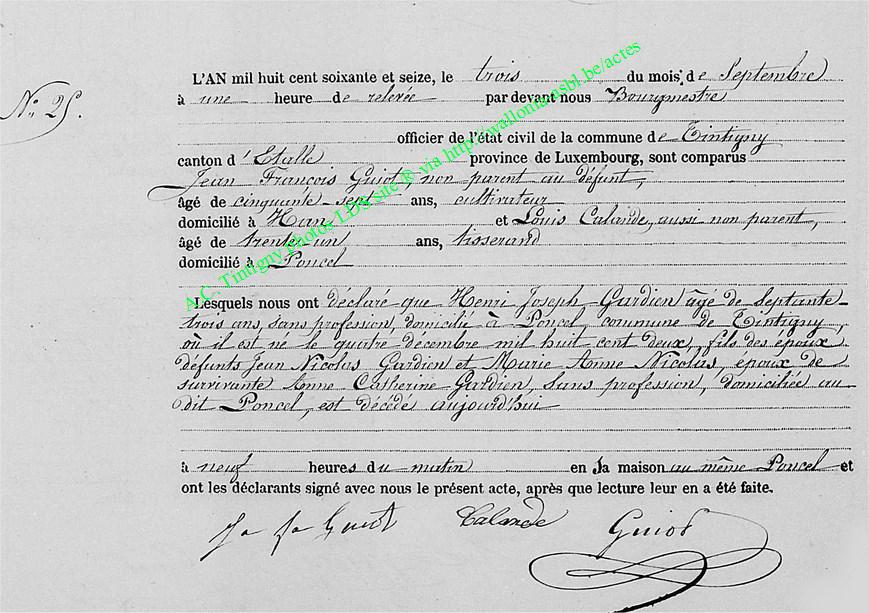 L'AN mil huit cent soixante et seize, le trois du mois de Septembre
No 25.
à une heure de relevée par devant nous Bourgmestre
officier de l'état civil de la commune de Tintigny
canton d'Etalle province de Luxembourg, sont comparus
Jean François Guiot, non parent au défunt,
âgé de cinquante-sept ans, cultivateur
domicilié à Han et Louis Calande, aussi non parent,
âgé de trente-un ans, tisserand
domicilié à Poncel
Lesquels nous ont déclaré que Henri Joseph Gardien âgé de Septante-
trois ans, sans profession, domicilié à Poncel, commune de Tintigny,
où il est né le quatre décembre mil huit cent deux, fils des époux
défunts Jean Nicolas Gardien et Marie Anne Nicolas, époux de
survivante Anne Catherine Gardien, sans profession, domiciliée au
dit Poncel, est décédé aujourd'hui
à neuf heures du matin en sa maison au même Poncel et
ont les déclarants signé avec nous le présent acte, après que lecture leur en a été faite.
Guiot Calande Guiot
A.C. Tintigny photos LDS site ® via http://wallonia.asbl.be/actes